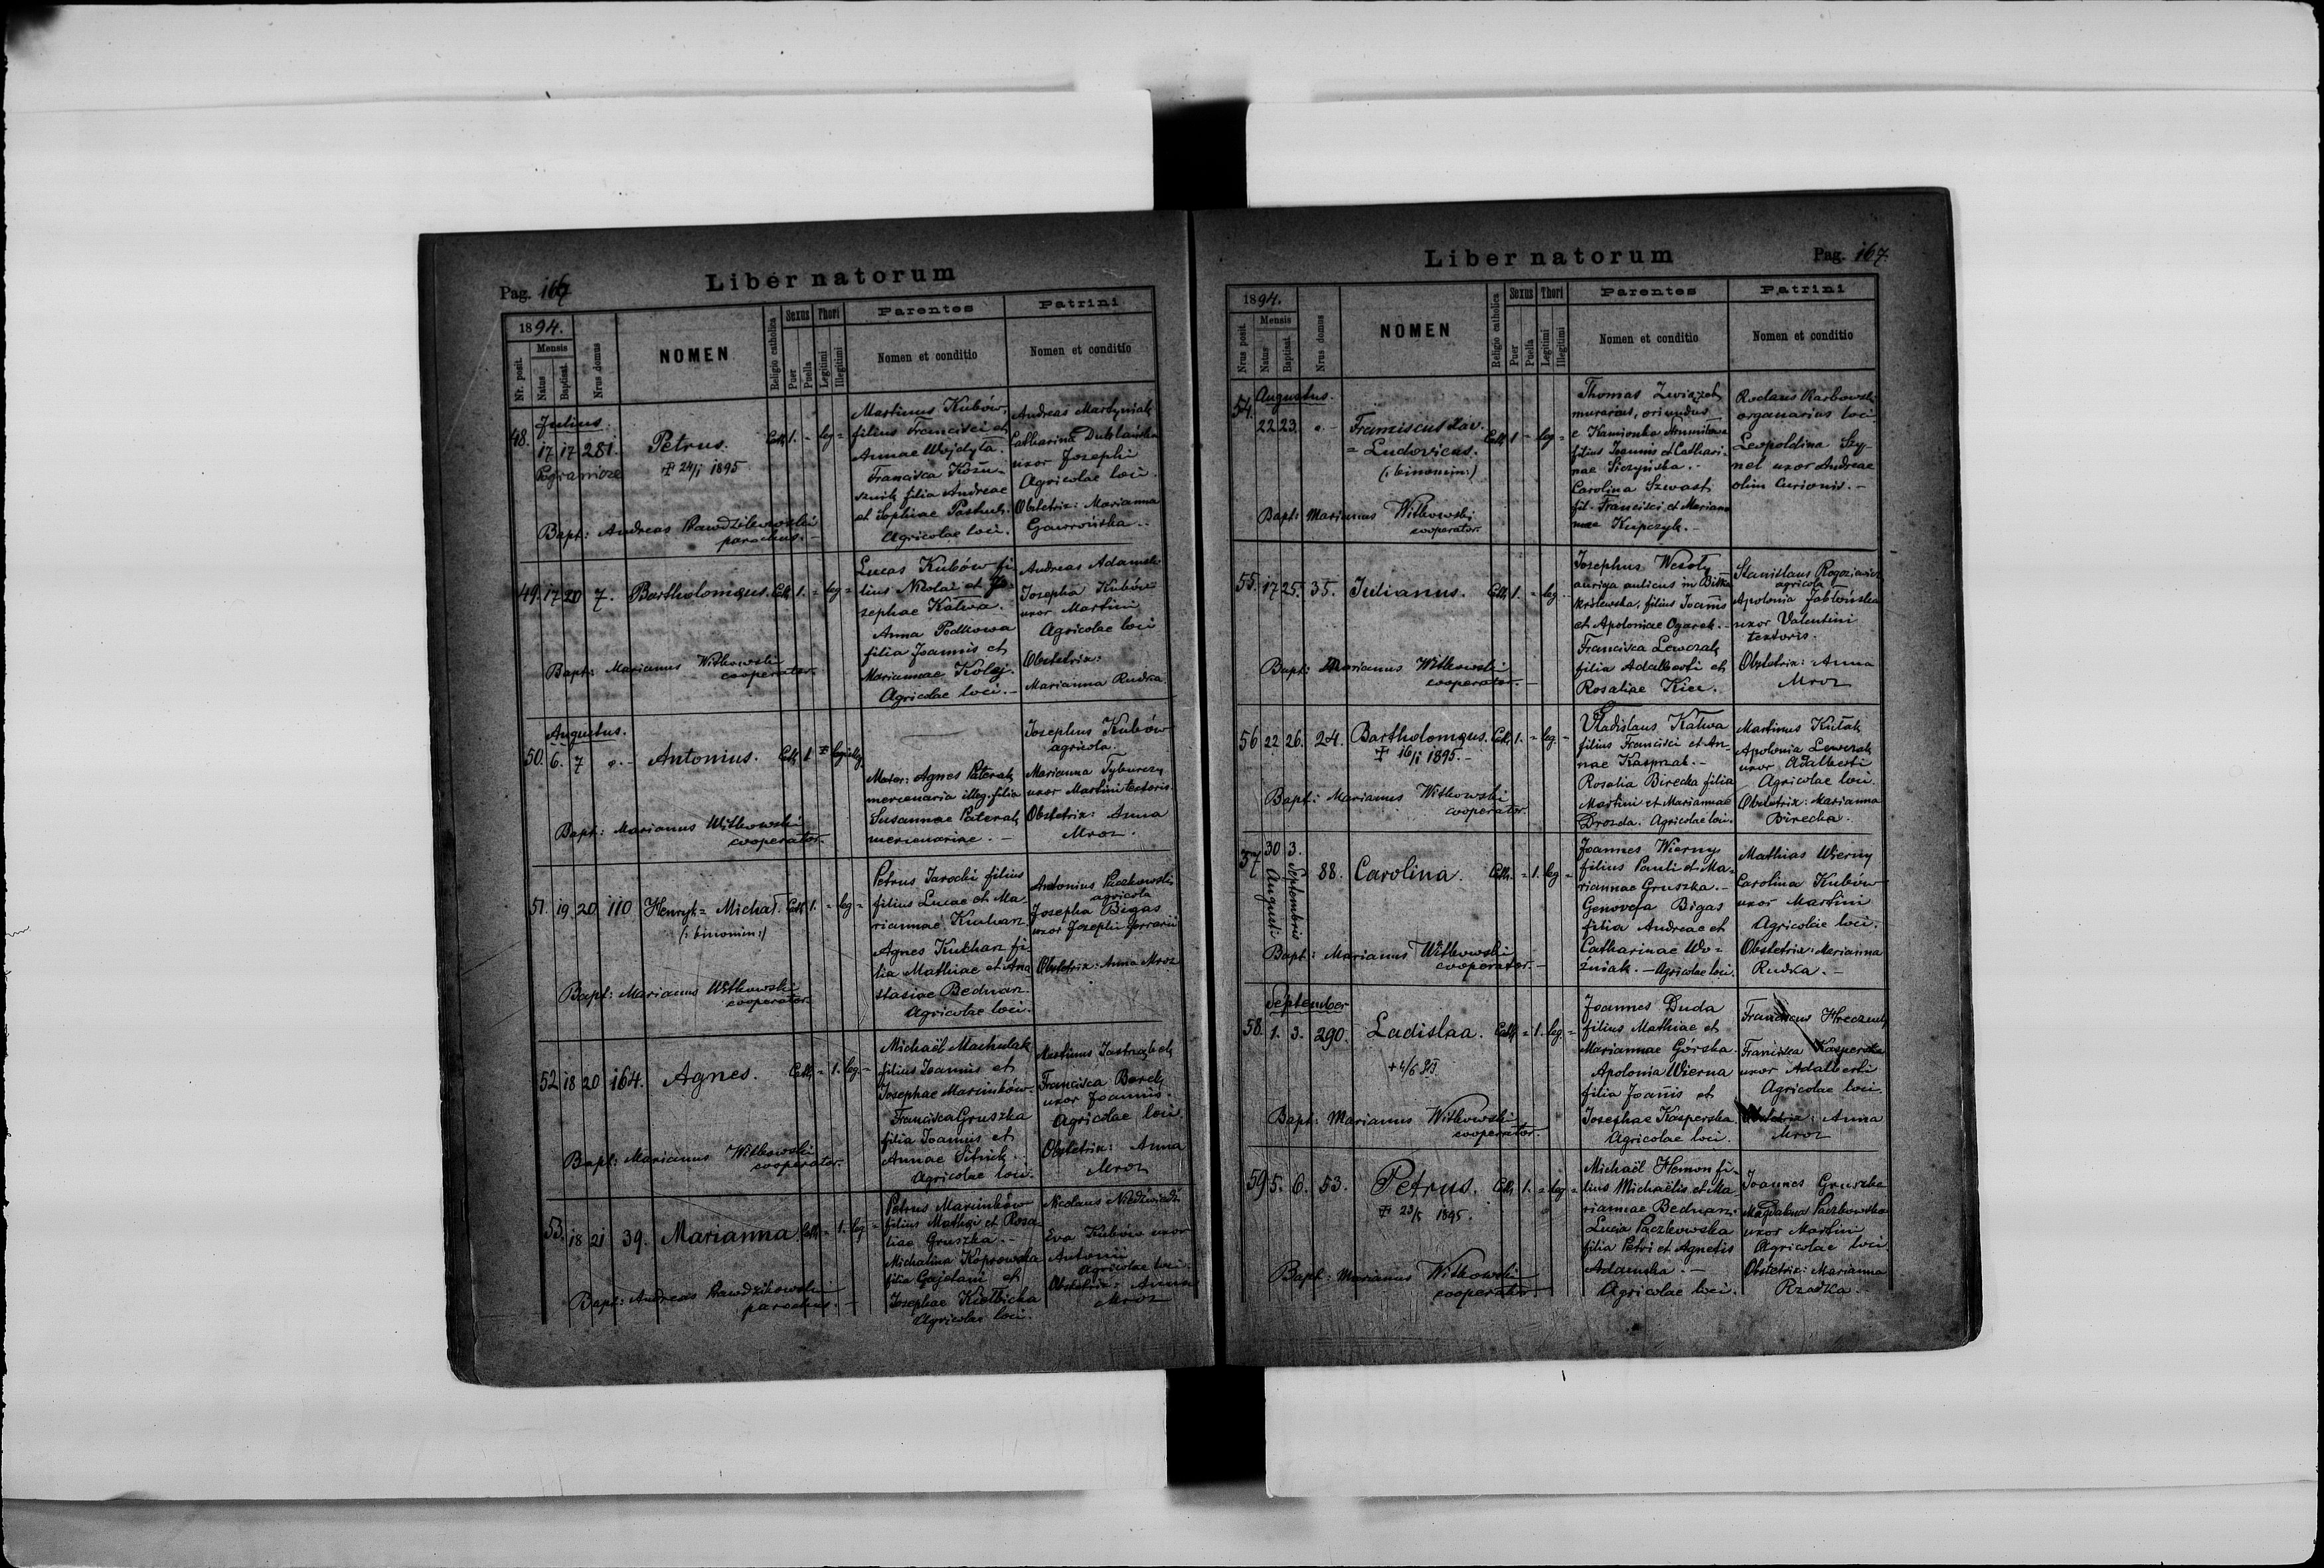 Pag. 166
Liber natorum
1894.
Nr. posit.
Mensis
Natus
Baptisat.
Nrus domus
NOMEN
Religio catholica
Sexus
Puer
Puella
Thori
Legitimi
Illegitimi
Parentes
Nomen et conditio
Patrini
Nomen et conditio
Julius.
48. 17 17 281. Petrus. Cath. 1. = leg =
Ŧ 24/1 1895
Pogranicze
Bapt: Andreas Rawdzikowski
parochus. -
Martinus Kubów,
filius Francisci et
Annae Wojdyła.
Francisca
filia Andreae
et Sophiae
Agricolae loci.
Andreas Martyniak
Catharina Dublańska
uxor Josephi
Agricolae loci.
Obstetrix: Marianna
Gawrońska.
49. 17 20 7. Bartholomaeus. Cath. 1. = leg =
Bapt: Marianus Witkowski
cooperator.
Lucas Kubów fi-
lius Nicolai et Jo-
sephae Kalwa.
Anna Podkowa
filia Joannis et
Mariannae Kolej.
Agricolae loci. -
Andreas Adamski
Josepha Kubów
uxor Martini
Agricolae loci
Obstetrix:
Marianna Rudka.
Augustus.
50. 6. 7 o. - Antonius. Cath. 1
Bapt: Marianus Witkowski
cooperator.
Mater: Agnes Paterak
mercenaria illeg. filia
Susannae Paterak
mercenariae. -
Josephus Kubów
agricola.
Marianna Tyburczy
uxor Martini textoris.
Obstetrix: Anna
Mroz.
51. 19 20 110 Henryk = Michał. Cath. 1. = leg =
(: binomin :)
Bapt: Marianus Witkowski
cooperator
Petrus Jarocki filius
filius Lucae et Ma-
riannae Kucharz.
Agnes Kucharz fi-
lia Mathiae et Ana
stasiae Bednarz.
Agricolae loci.
Antonius Paczkowski
agricola
Josepha Bigas
uxor Josephi ferrarii
Obstetrix: Anna Mroz
52 18 20 164. Agnes. Cath. = 1. leg. =
Bapt: Marianus Witkowski
cooperator.
Michaël Machulak
filius Joannis et
Josephae Marcinków.
Francisca Gruszka
filia Joannis et
Annae Sitnik.
Agricolae loci.
Martinus Jastrzębski
Francisca
uxor Joannis.
Agricolae loci.
Obstetrix: Anna
Mroz
53. 18 21 39. Marianna. Cath. = 1. leg =
Bapt: Andreas Rawdzikowski
parochus. -
Petrus Marcinków
filius Mathaei et Rosa-
liae Gruszka. -
Michalina Koprowska
filia Gajetani et
Josephae Kiełbicka
Agricolae loci.
Nicolaus Niedźwiedź
Eva Kubów uxor
Antonii
Agricolae loci.
Obstetrix: Anna
Mroz
Liber natorum
Pag. 167.
1894.
Nrus posit.
Mensis
Natus
Baptisat
Nrus domus
NOMEN
Religio catholica
Sexus
Puer
Puella
Thori
Legitimi
Illegitimi
Parentes
Nomen et conditio
Patrini
Nomen et conditio
Augustus.
54. 22 23. o. - Franciscus Xav. Cath. 1 = leg =
= Ludovicus.
(: binomin :)
Bapt: Marianus Witkowski
cooperator.
Thomas
murarius, oriundus
e Kamionka Strumiłowa
filius Joannis et Cathari-
nae Siczyńska. -
Carolina Szwast
fil. Francisci et Marian-
nae Kupczyk. -
Karbowski
organarius loci
Leopoldina Szy-
nel uxor Andreae
olim Curionis. -
55. 17 25. 35. Julianus. Cath. 1. = leg.
Bapt: Marianus Witkowski
cooperator. -
Josephus Wesoły
auriga aulicus in Biłka
królewska, filius Joannis
et Apoloniae Ogarek. -
Francisca Lewczak
filia Adalberti et
Rosaliae Kier.
Stanislaus
agricola
Apolonia Jabłońska
uxor Valentini
textoris.
Obstetrix: Anna
Mroz
56 22 26. 24. Bartholomaeus. Cath. 1. = leg. =
Ŧ 16/1 1895. -
Bapt: Marianus Witkowski
cooperator.
Vladislaus Kalwa
filius Francisci et An-
nae Kasprzak. -
Rosalia Birecka filia
Martini et Mariannae
Drozda. Agricolae loci.
Martinus Kułak
Apolonia Lewczak
uxor Adalberti
Agricolae loci.
Obstetrix: Marianna
Birecka.
57 30 3. 88. Carolina. Cath. = 1. leg =
Augusti
Septembris
Bapt: Marianus Witkowski
cooperator. -
Joannes Wierny
filius Pauli et Ma-
riannae Gruszka. -
Genovefa Bigas
filia Andreae et
Catharinae Wo-
źniak. - Agricolae loci.
Mathias Wierny
Carolina Kubów
uxor Martini
Agricolae loci.
Obstetrix: Marianna
Rudka. -
September
58. 1. 3. 290. Ladislaa. Cath. = 1. leg. =
Bapt: Marianus Witkowski
cooperator.
Joannes Duda
filius Mathiae et
Mariannae Górska.
Apolonia Wierna
filia Joannis et
Josephae Kasperska
Agricolae loci.
Franciscus Hreczuch
Francisca Kasperska
uxor Adalberti
Agricolae loci.
Obstetrix: Anna
Mroz
59 5. 6. 53. Petrus. Cath. 1. = leg =
1895.
Bapt: Marianus Witkowski
cooperator
Michaël Hemon fi-
lius Michaëlis et Ma-
riannae Bednarz.
Lucia Paczkowska
filia Petri et Agnetis
Adamska. -
Agricolae loci.
Joannes Gruszka
Magdalena Paczkowska
uxor Martini
Agricolae loci.
Obstetrix: Marianna
Rzadka.